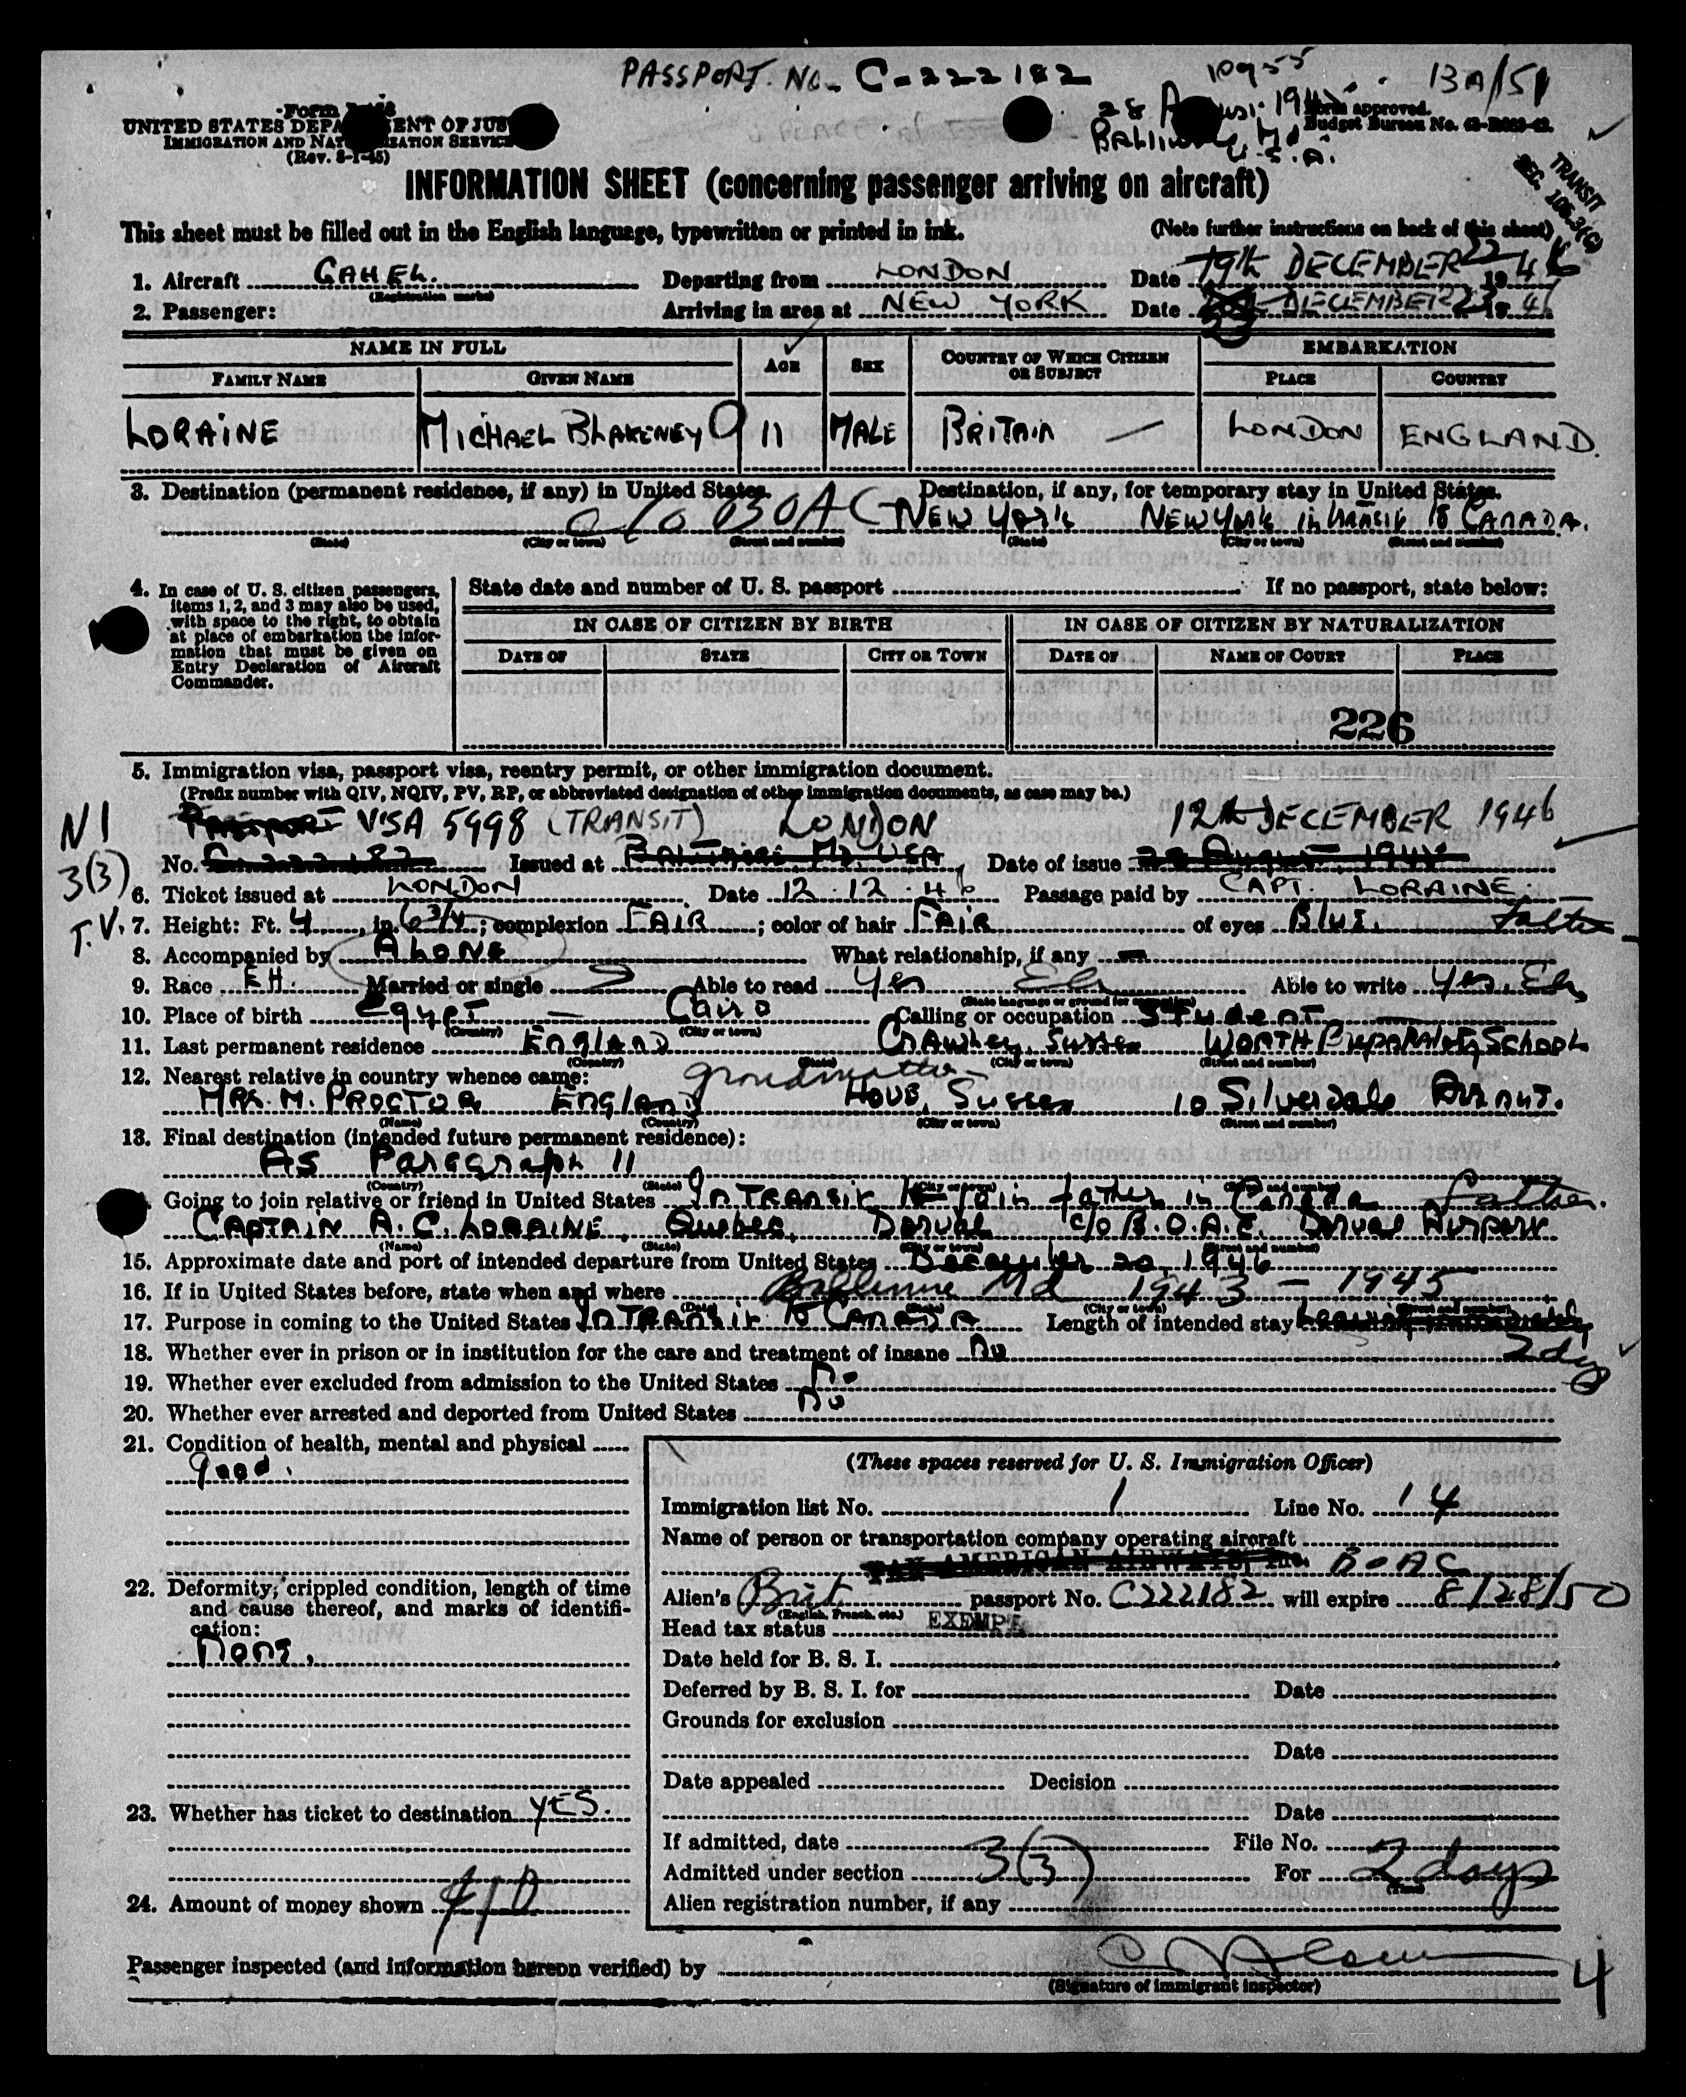 PASSPORT. No. C-222182
10955
13A/51
28 August 194
Baltimore, Md
U.S.A.
Form
UNITED STATES DEPARTMENT OF JUSTICE
IMMIGRATION AND NATURALIZATION SERVICE
(Rev. 8-1-45)
Form approved.
Budget Bureau No.
TRANSIT
SEC. 106.3(G)
INFORMATION SHEET (concerning passenger arriving on aircraft)
This sheet must be filled out in the English language, typewritten or printed in ink. (Note further instructions on back of this sheet)
1. Aircraft GAHEL. Departing from LONDON Date 19th DECEMBER 22 1946
(Registration marks)
2. Passenger: Arriving in area at NEW YORK Date DECEMBER 23 1946
23
NAME IN FULL AGE SEX COUNTRY OF WHICH CITIZEN OR SUBJECT EMBARKATION
FAMILY NAME GIVEN NAME PLACE COUNTRY
LORAINE MICHAEL BLAKENEY O 11 MALE BRITAIN — LONDON ENGLAND.
3. Destination (permanent residence, if any) in United States. Destination, if any, for temporary stay in United States.
c/o BOAC NEW YORK NEW YORK in transit to CANADA.
(State) (City or town) (Street and number) (State) (City or town) (Street and number)
4. In case of U. S. citizen passengers, items 1, 2, and 3 may also be used, with space to the right, to obtain at place of embarkation the information that must be given on Entry Declaration of Aircraft Commander.
State date and number of U. S. passport If no passport, state below:
IN CASE OF CITIZEN BY BIRTH IN CASE OF CITIZEN BY NATURALIZATION
DATE OF STATE CITY OR TOWN DATE OF NAME OF COURT PLACE
226
5. Immigration visa, passport visa, reentry permit, or other immigration document.
(Prefix number with QIV, NQIV, PV, RP, or abbreviated designation of other immigration documents, as case may be.)
N1
3(3)
T.V.
PASSPORT VISA 5998 (TRANSIT) LONDON 12th DECEMBER 1946
No. C-222182 Issued at BALTIMORE MD. USA Date of issue 28 August 194
6. Ticket issued at LONDON Date 12.12.46 Passage paid by CAPT. LORAINE.
father
7. Height: Ft. 4, in. 6 3/4; complexion FAIR; color of hair FAIR of eyes BLUE.
8. Accompanied by ALONE What relationship, if any —
9. Race EH. Married or single S Able to read Yes Eh Able to write Yes, Eh,
(State language or ground for exemption)
10. Place of birth Egypt — Cairo Calling or occupation STUDENT —
(Country) (City or town)
11. Last permanent residence ENGLAND CRAWLEY, SUSSEX WORTH PREPARATORY SCHOOL
(Country) (State) (City or town) (Street and number)
12. Nearest relative in country whence came: grandmother
MRS. M. PROCTOR ENGLAND HOVE, SUSSEX 10 Silverdale AVENUE.
(Name) (Country) (City or town) (Street and number)
13. Final destination (intended future permanent residence):
As Paragraph 11
(Country) (State) (City or town) (Street and number)
Going to join relative or friend in United States IN TRANSIT to join father in Canada father.
CAPTAIN A.C. LORAINE, Quebec, Dorval c/o B.O.A.C. Dorval Airport
(Name) (State) (City or town) (Street and number)
15. Approximate date and port of intended departure from United States December 20, 1946
16. If in United States before, state when and where Baltimore Md 1943 — 1945
(Date) (State) (City or town) (Street and number)
17. Purpose in coming to the United States IN TRANSIT TO CANADA Length of intended stay
2 days
18. Whether ever in prison or in institution for the care and treatment of insane No
19. Whether ever excluded from admission to the United States No
20. Whether ever arrested and deported from United States No
21. Condition of health, mental and physical
Good.
22. Deformity, crippled condition, length of time and cause thereof, and marks of identification:
None.
23. Whether has ticket to destination YES.
24. Amount of money shown $10
(These spaces reserved for U. S. Immigration Officer)
Immigration list No. 1 Line No. 14
Name of person or transportation company operating aircraft
PAN AMERICAN AIRWAYS, Inc. BOAC
Alien's Brit passport No. C222182 will expire 8/28/50
(English, French, etc.)
Head tax status EXEMPT
Date held for B. S. I.
Deferred by B. S. I. for Date
Grounds for exclusion
Date
Date appealed Decision
Date
If admitted, date File No.
Admitted under section 3(3) For 2 days
(Time)
Alien registration number, if any
Passenger inspected (and information hereon verified) by
(Signature of immigrant inspector)
4